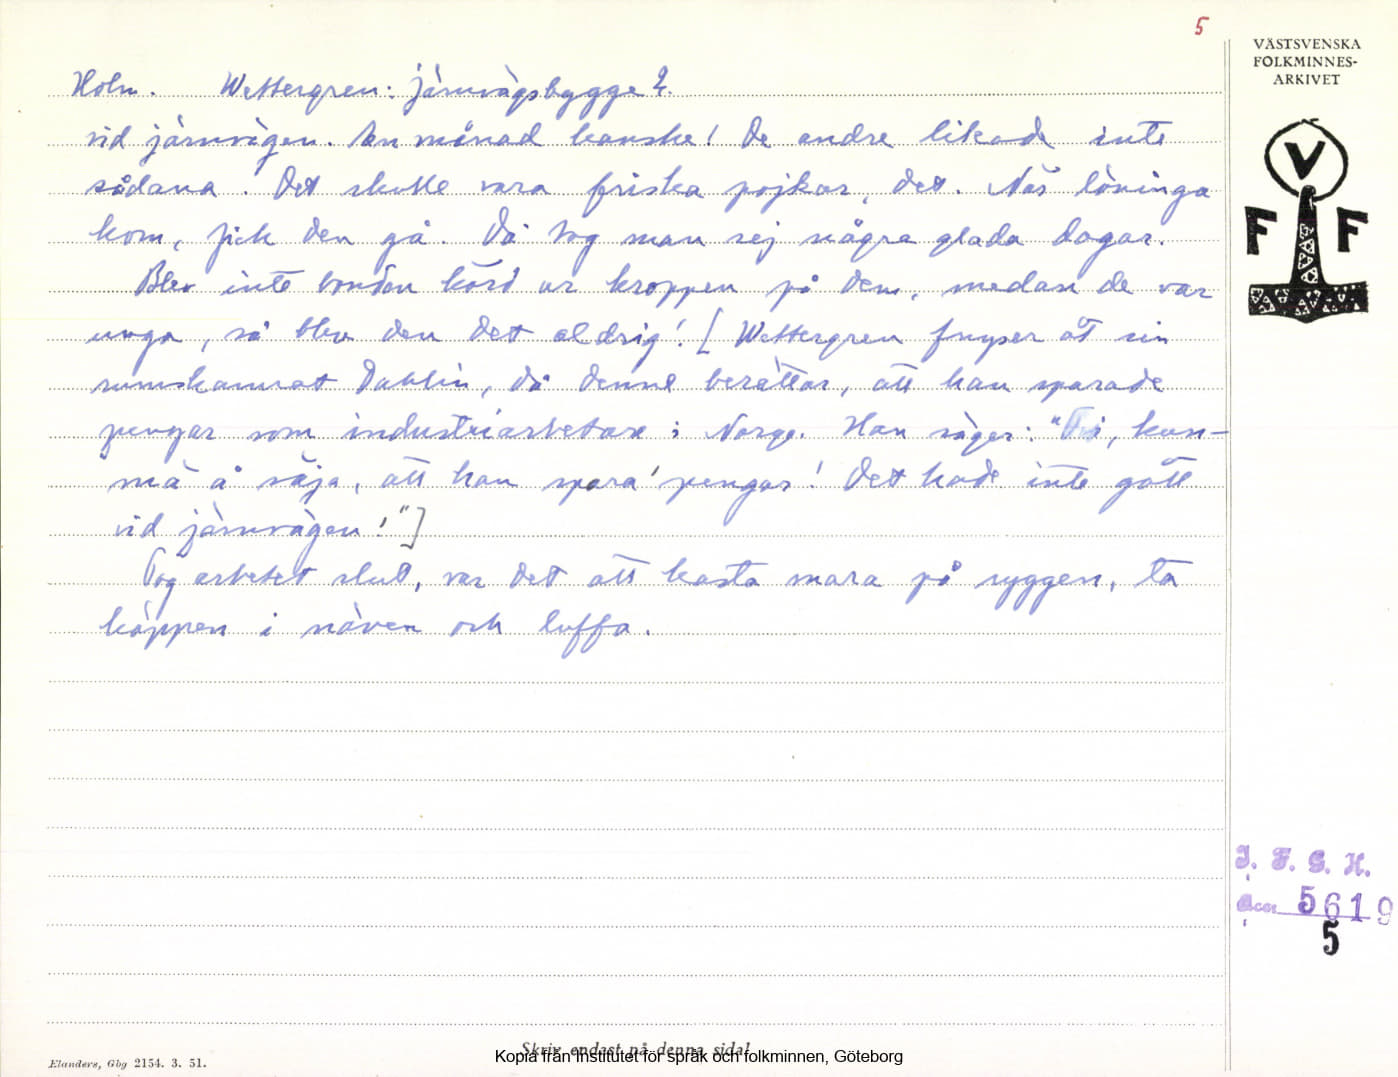 5
VÄSTSVENSKA
FOLKMINNES-
ARKIVET
V
F F
Holm. Wettergren: järnvägsbygge 2.
vid järnvägen. En månad kanske! De andre likade inte
sådana. Det skulle vara friska pojkar, det. När löninga
kom, fick den gå. Då tog man sej några glada dagar.
Blev inte bonden körd ur kroppen på dem, medan de var
unga, så blev den det aldrig! [Wettergren fnyser åt sin
rumskamrat Dahlin, då denne berättar, att han sparade
pengar som industriarbetare i Norge. Han säger: "Fö, kan-
mä å säja, att han spara' pengar! Det hade inte gått
vid järnvägen!"]
Tog arbetet slut, var det att kasta mara på ryggen, ta
käppen i näven och luffa.
I. F. G. H.
Acc. 5619
5
Skriv endast på denna sida!
Elanders, Gbg 2154. 3. 51.
Kopia från Institutet för språk och folkminnen, Göteborg